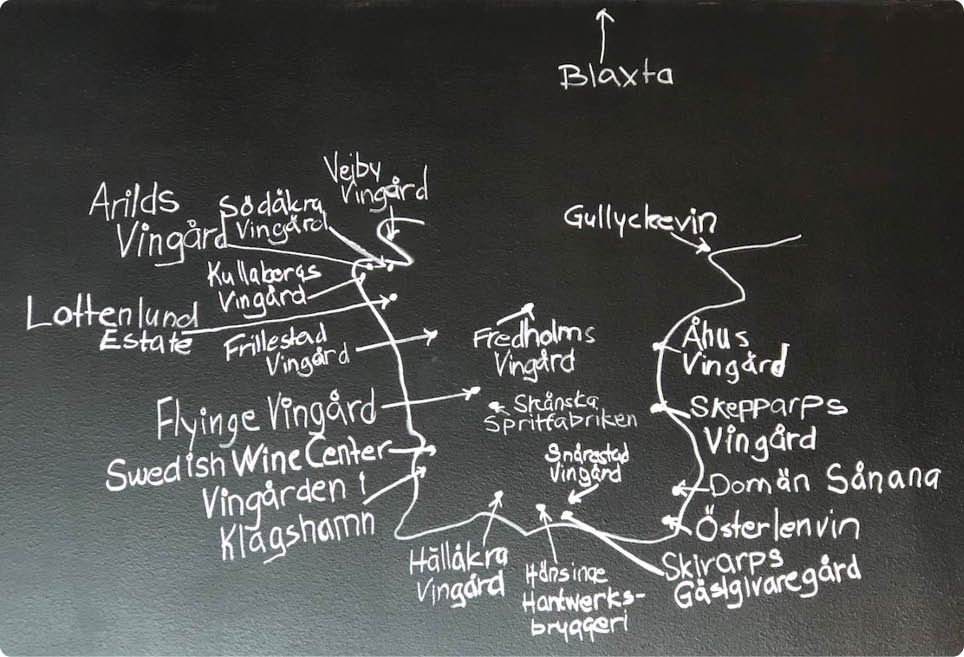 Blaxta
Vejby
Vingård
Arilds
Vingård
Södåkra
Vingård
Gullyckevin
Kullabergs
Vingård
Lottenlund
Estate
Frillestad
Vingård
Fredholms
Vingård
Åhus
Vingård
Flyinge Vingård
Skånska
Spritfabriken
Skepparps
Vingård
Swedish Wine Center
Snårestad
Vingård
Vingården i
Klagshamn
Domän Sånana
Österlenvin
Hällåkra
Vingård
Hönsinge
Hantwerks-
bryggeri
Skivarps
Gästgivaregård